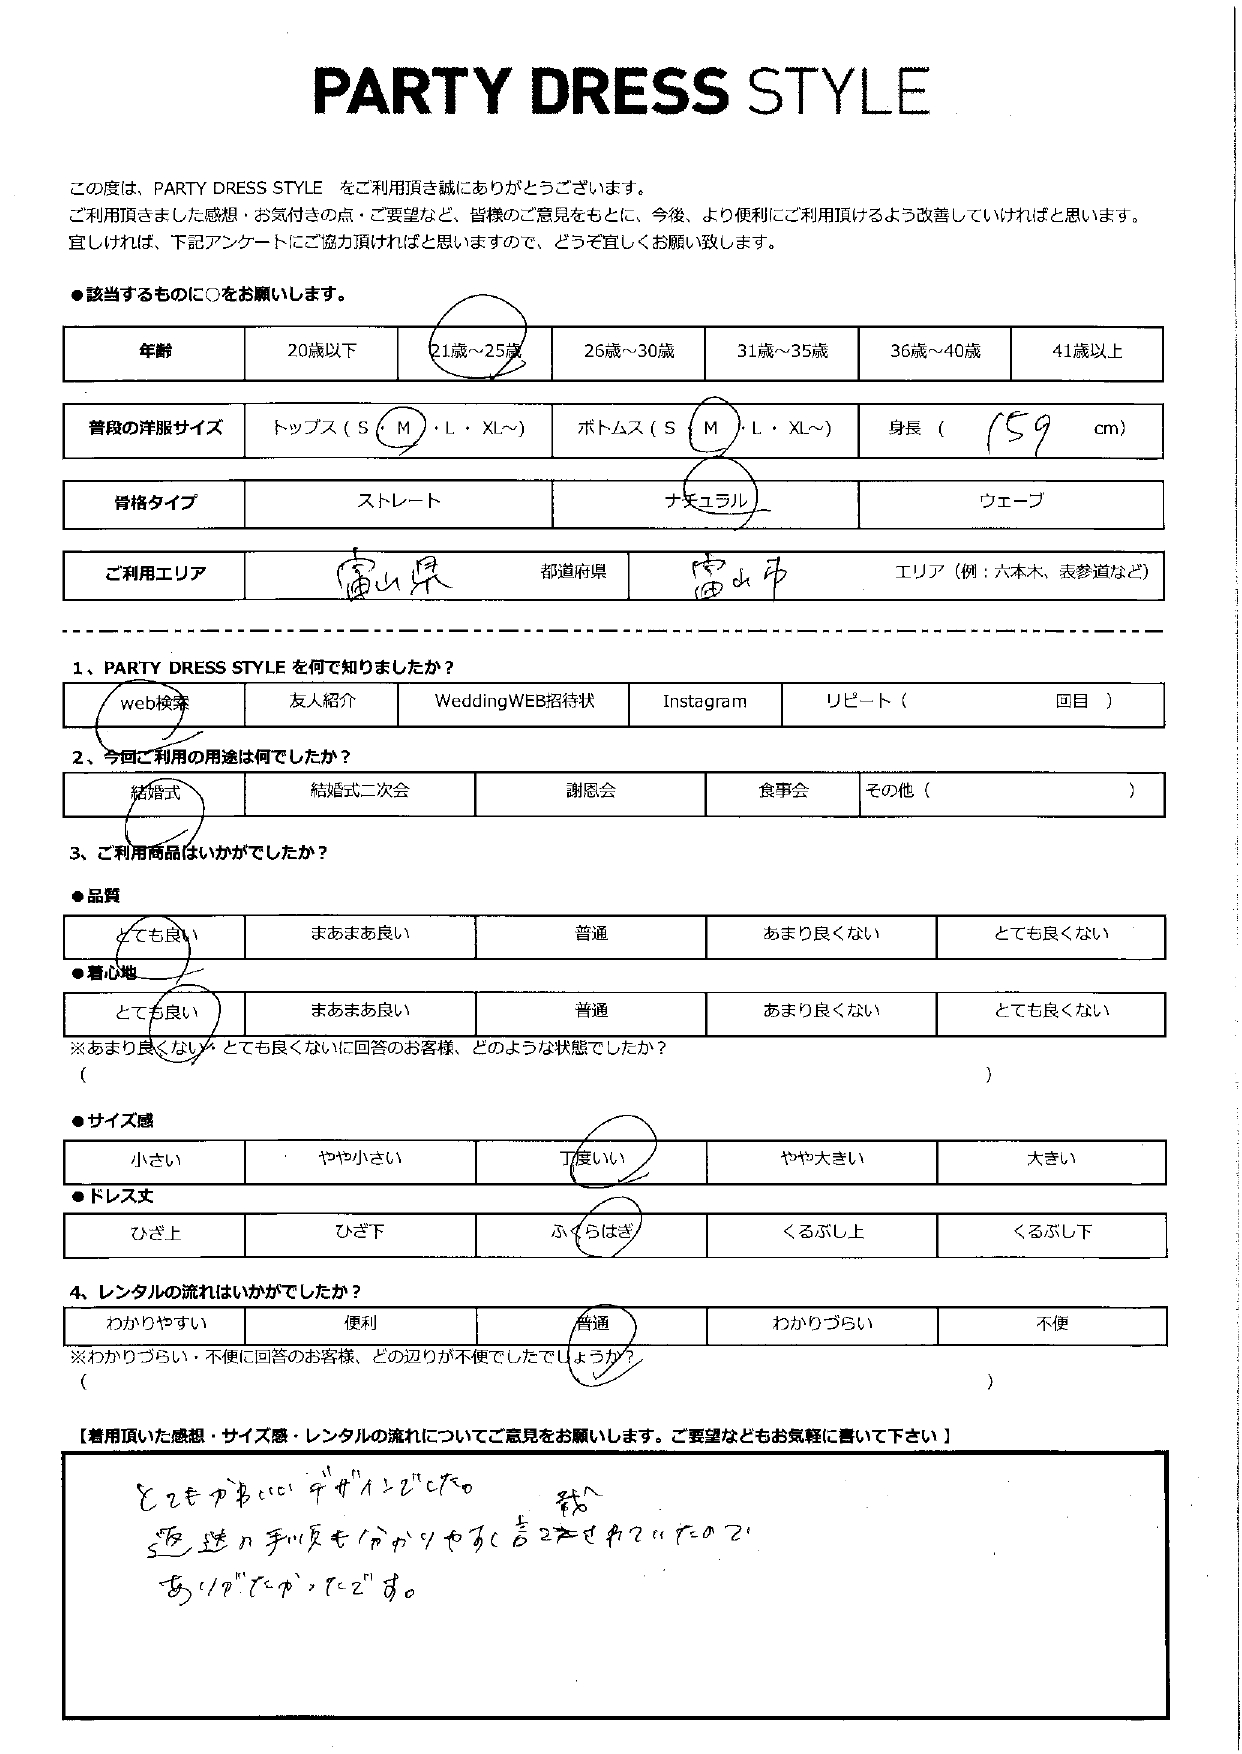 PARTY DRESS STYLE
この度は、PARTY DRESS STYLE をご利用頂き誠にありがとうございます。
ご利用頂きました感想・お気付きの点・ご要望など、皆様のご意見をもとに、今後、より便利にご利用頂けるよう改善していければと思います。
宜しければ、下記アンケートにご協力頂ければと思いますので、どうぞ宜しくお願い致します。
●該当するものに○をお願いします。
年齢 20歳以下 21歳～25歳 26歳～30歳 31歳～35歳 36歳～40歳 41歳以上
普段の洋服サイズ トップス ( S ・ M ・ L ・ XL～) ボトムス ( S ・ M ・ L ・ XL～) 身長 ( 159 cm)
骨格タイプ ストレート ナチュラル ウェーブ
ご利用エリア 富山県 都道府県 富山市 エリア（例：六本木、表参道など）
1、PARTY DRESS STYLE を何で知りましたか？
web検索 友人紹介 WeddingWEB招待状 Instagram リピート（ 回目 ）
2、今回ご利用の用途は何でしたか？
結婚式 結婚式二次会 謝恩会 食事会 その他（ ）
3、ご利用商品はいかがでしたか？
●品質
とても良い まあまあ良い 普通 あまり良くない とても良くない
●着心地
とても良い まあまあ良い 普通 あまり良くない とても良くない
※あまり良くない・とても良くないに回答のお客様、どのような状態でしたか？
( )
●サイズ感
小さい やや小さい 丁度いい やや大きい 大きい
●ドレス丈
ひざ上 ひざ下 ふくらはぎ くるぶし上 くるぶし下
4、レンタルの流れはいかがでしたか？
わかりやすい 便利 普通 わかりづらい 不便
※わかりづらい・不便に回答のお客様、どの辺りが不便でしたでしょうか？
( )
【着用頂いた感想・サイズ感・レンタルの流れについてご意見をお願いします。ご要望などもお気軽に書いて下さい】
とてもかわいいデザインでした。
返送の手順も分かりやすく記載されていたので
ありがたかったです。